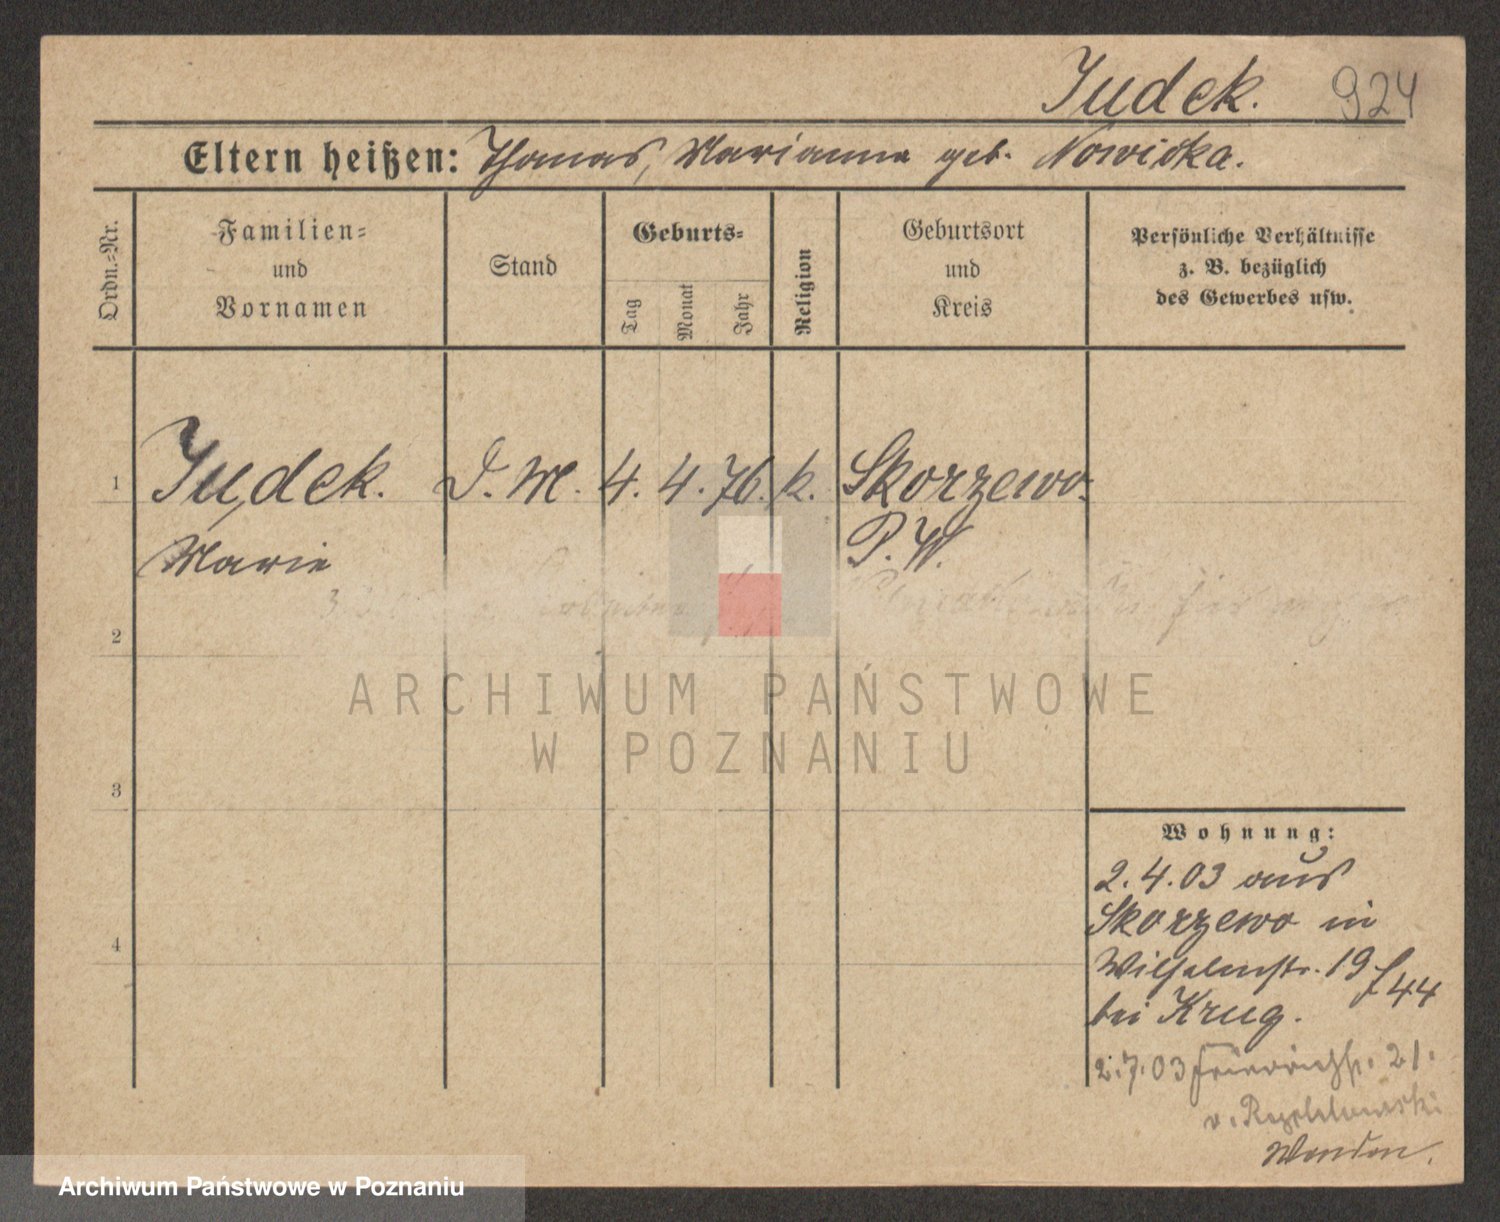 Judek. 924
Eltern heißen: Thomas, Marianna geb. Nowicka.
Ordn.=Nr.
Familien=
und
Vornamen
Stand
Geburts=
Tag
Monat
Jahr
Religion
Geburtsort
und
Kreis
Persönliche Verhältnisse
z. B. bezüglich
des Gewerbes usw.
1 Judek. D. M. 4. 4. 76. k. Skorzewo.
Marie P. W.
2
ARCHIWUM PAŃSTWOWE
W POZNANIU
3
Wohnung:
2. 4. 03 aus
Skorzewo in
4
Wilhelmstr. 19 44
bei Krug.
2. 7. 03 Friedrichstr. 21.
v.
Archiwum Państwowe w Poznaniu